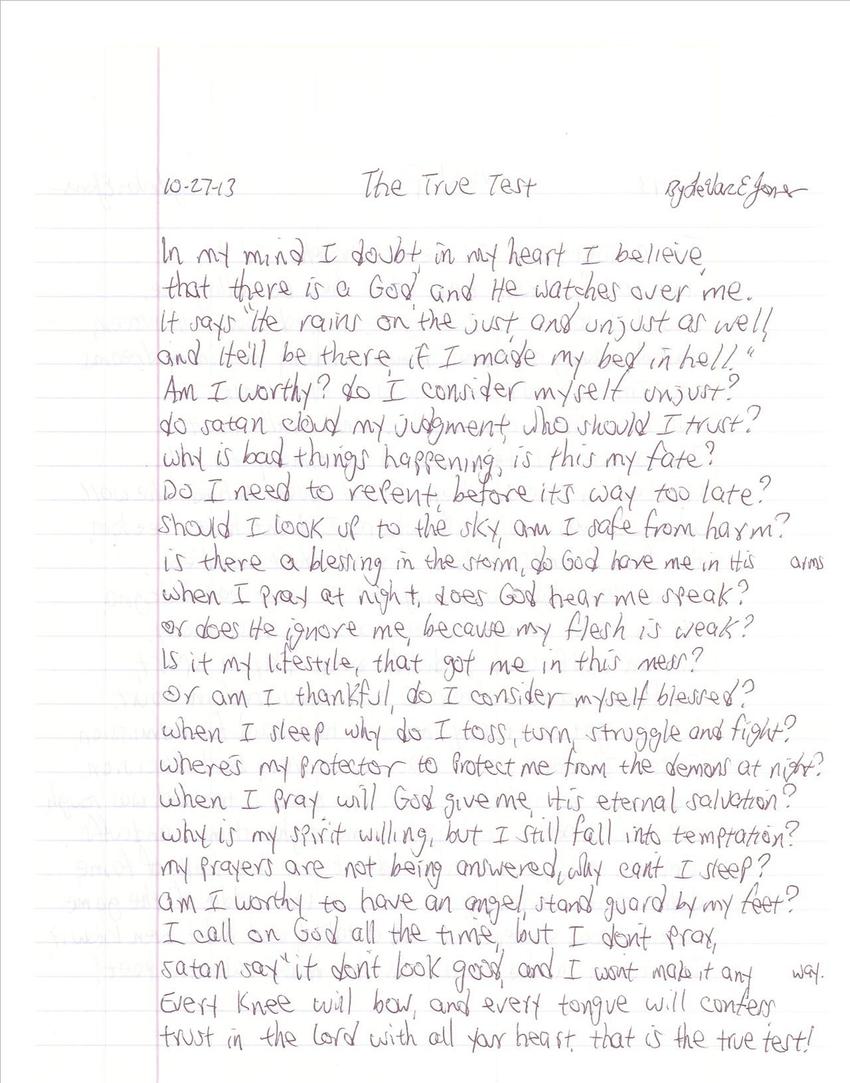 10-27-13 The True Test By LeVar E Jones
In my mind I doubt, in my heart I believe,
that there is a God, and He watches over me.
It says "He rains on the just, and unjust as well,
and He'll be there, if I made my bed in hell."
Am I worthy? do I consider myself unjust?
do satan cloud my judgment, who should I trust?
why is bad things happening, is this my fate?
Do I need to repent, before it's way too late?
should I look up to the sky, am I safe from harm?
is there a blessing in the storm, do God have me in His arms
when I pray at night, does God hear me speak?
or does He ignore me, because my flesh is weak?
Is it my lifestyle, that got me in this mess?
Or am I thankful, do I consider myself blessed?
when I sleep why do I toss, turn, struggle and fight?
where's my protector to protect me from the demons at night?
when I pray, will God give me, His eternal salvation?
why is my spirit willing, but I still fall into temptation?
my prayers are not being answered, why can't I sleep?
am I worthy to have an angel, stand guard by my feet?
I call on God all the time, but I don't pray,
satan say "it don't look good, and I wont make it any way.
Every Knee will bow, and every tongue will confess
trust in the lord with all your heart, that is the true test!